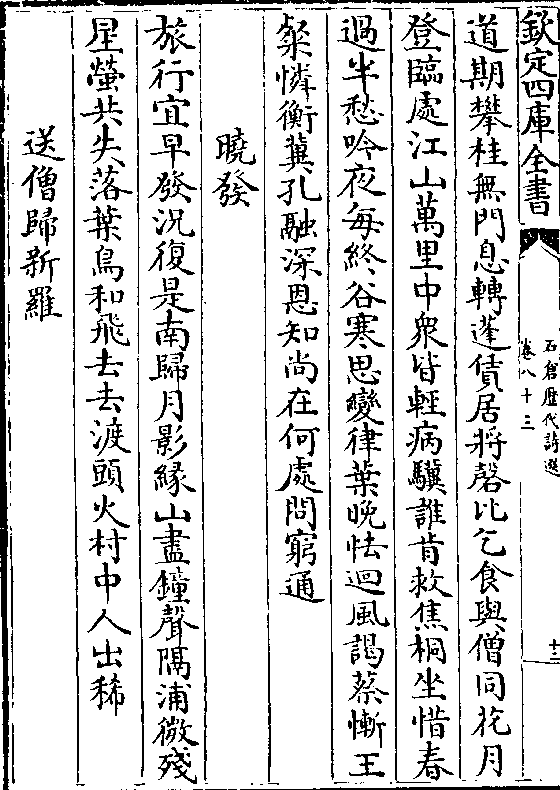 欽定四庫全書
石倉歴代詩選
卷八十三
十三
道期攀桂無門息轉蓬賃居將罄比乞食與僧同花月
登臨處江山萬里中衆皆輕病驥誰肯救焦桐坐惜春
過半愁吟夜每終谷寒思變律葉晚怯迴風謁蔡慚王
粲憐衡冀孔融深恩知尚在何處問窮通
曉發
旅行宜早發況復是南歸月影緣山盡鐘聲隔浦微殘
星螢共失落葉鳥和飛去去渡頭火村中人出稀
送僧歸新羅